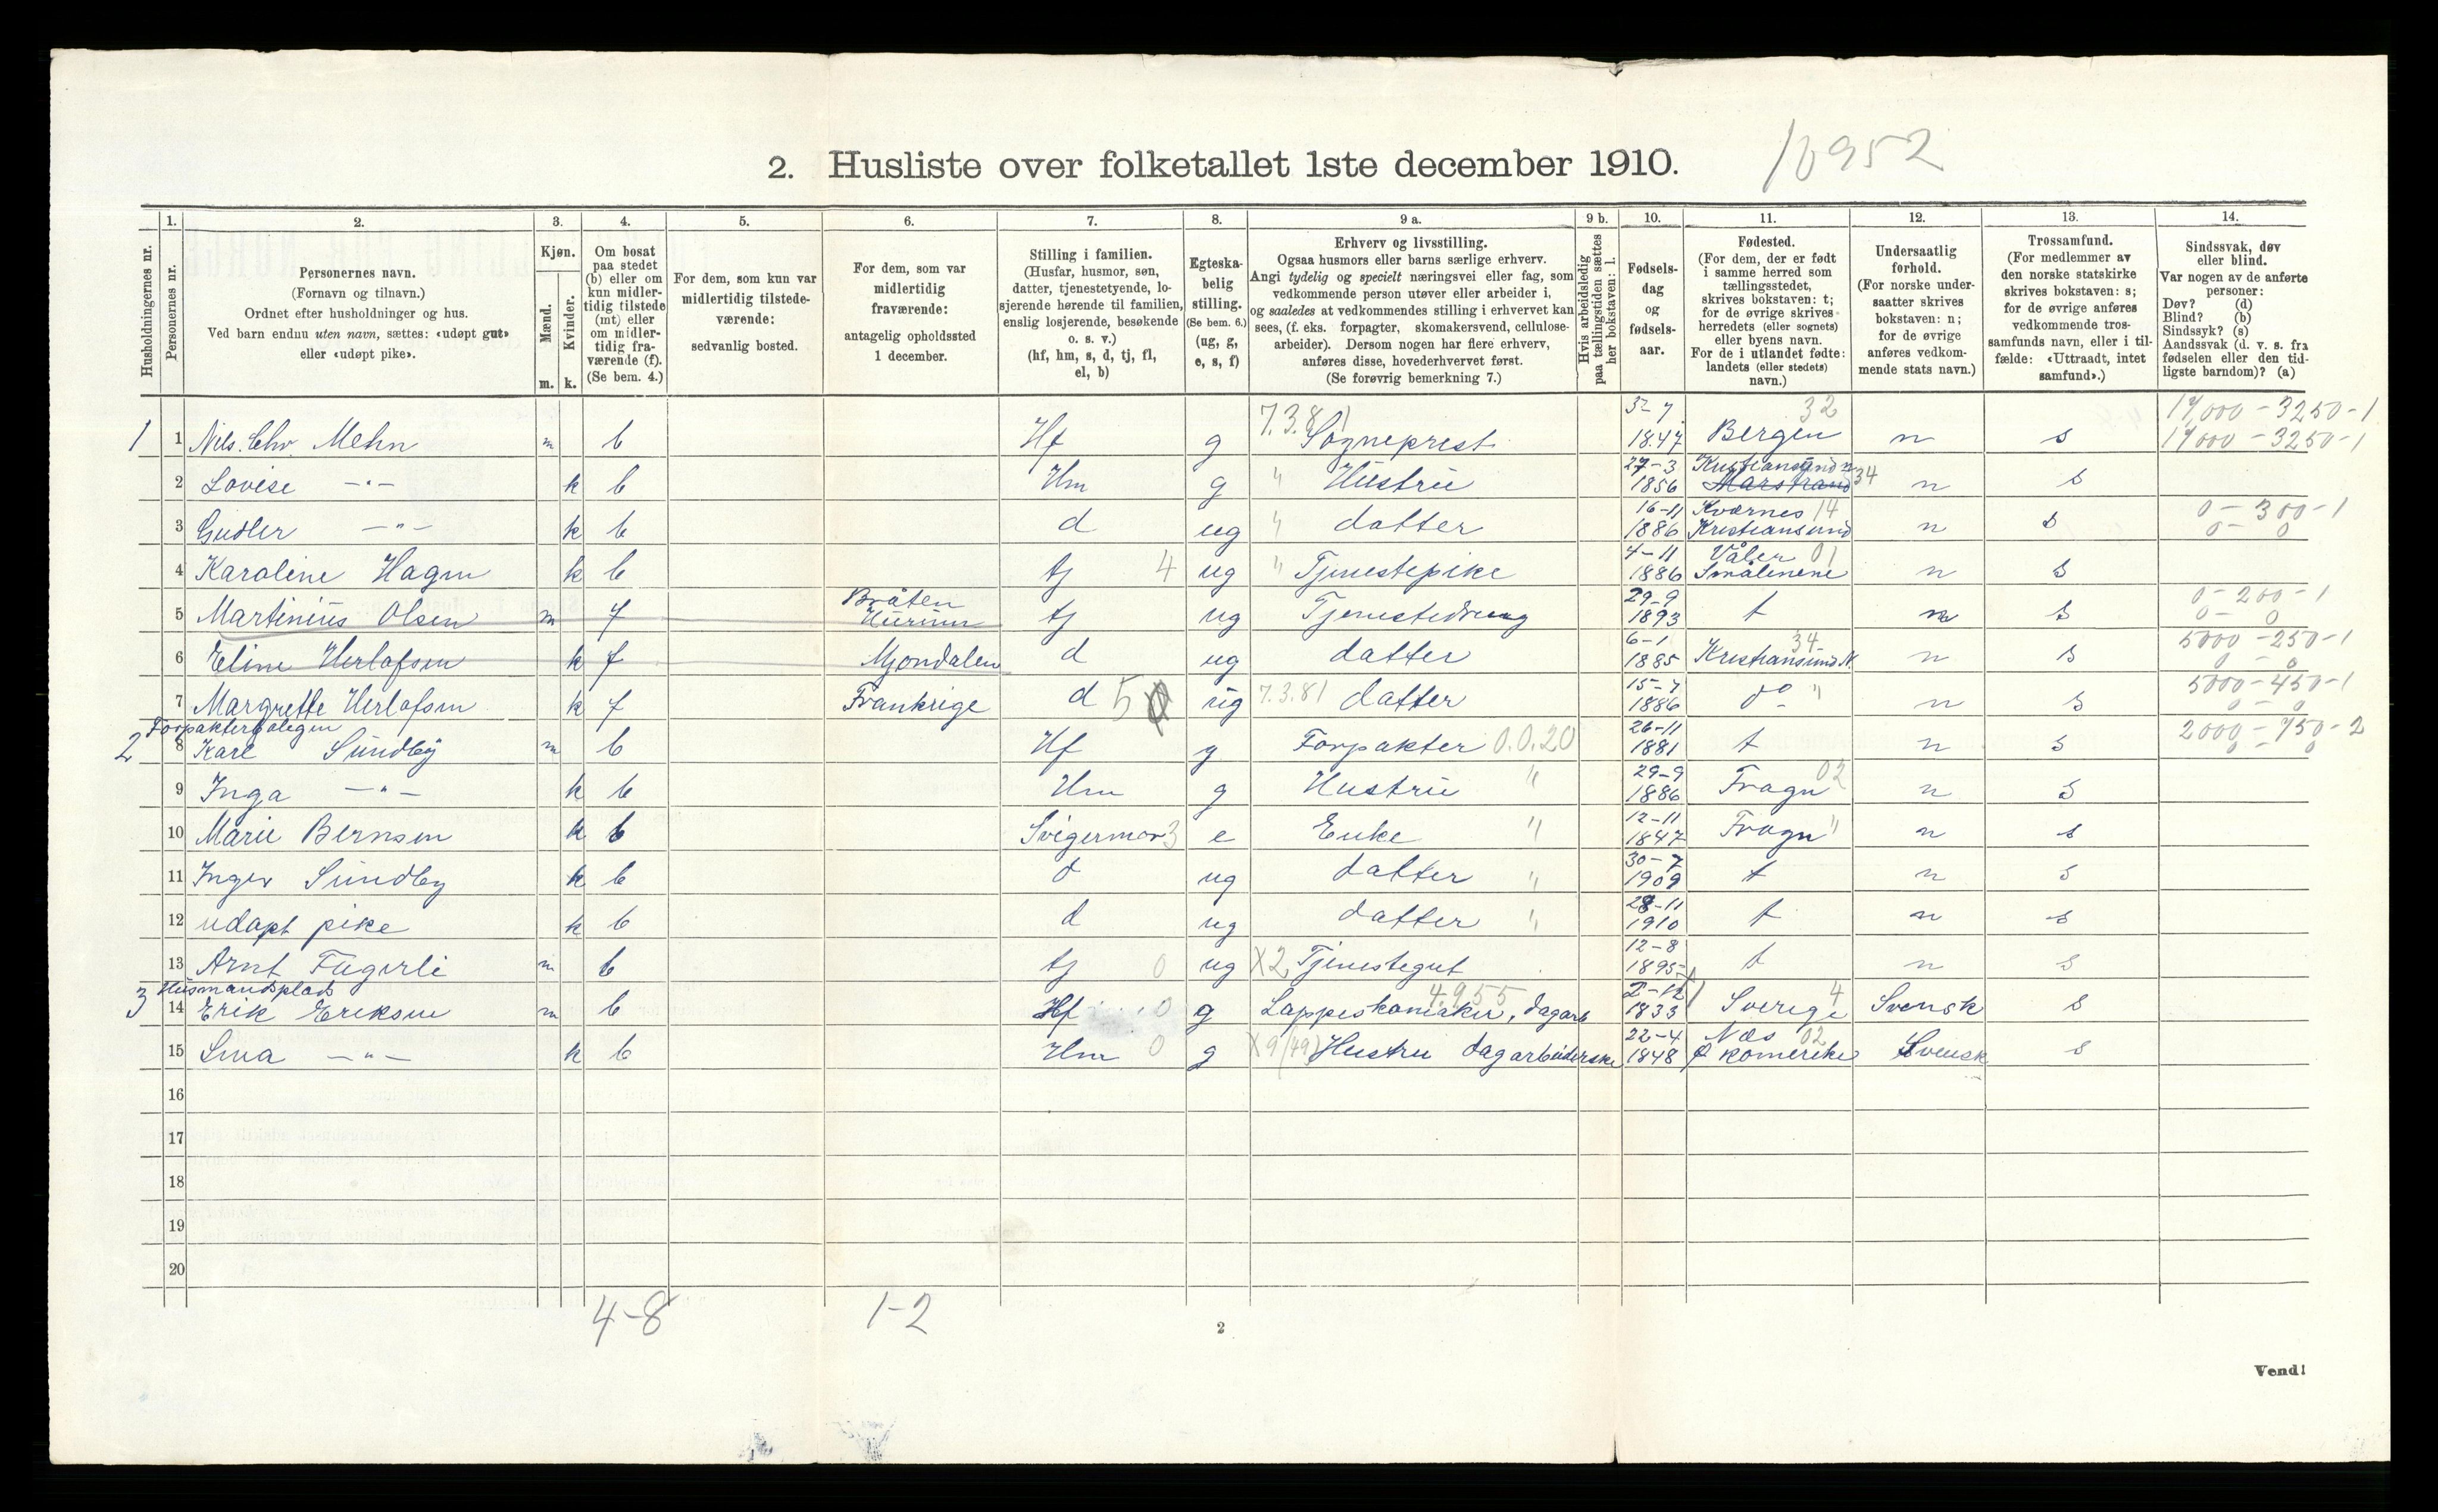 2. Husliste over folketallet 1ste december 1910.
10952
Husholdningernes nr.
1. Personernes nr.
2. Personernes navn.
(Fornavn og tilnavn.)
Ordnet efter husholdninger og hus.
Ved barn endnu uten navn, sættes: «udøpt gut»
eller «udøpt pike».
3. Kjøn.
Mænd. m.
Kvinder. k.
4. Om bosat
paa stedet
(b) eller om
kun midler-
tidig tilstede
(mt) eller
om midler-
tidig fra-
værende (f).
(Se bem. 4.)
5. For dem, som kun var
midlertidig tilstede-
værende:
sedvanlig bosted.
6. For dem, som var
midlertidig
fraværende:
antagelig opholdssted
1 december.
7. Stilling i familien.
(Husfar, husmor, søn,
datter, tjenestetyende, lo-
sjerende hørende til familien,
enslig losjerende, besøkende
o. s. v.)
(hf, hm, s, d, tj, fl,
el, b)
8. Egteska-
belig
stilling.
(Se bem. 6.)
(ug, g,
e, s, f)
9 a. Erhverv og livsstilling.
Ogsaa husmors eller barns særlige erhverv.
Angi tydelig og specielt næringsvei eller fag, som
vedkommende person utøver eller arbeider i,
og saaledes at vedkommendes stilling i erhvervet kan
sees, (f. eks. forpagter, skomakersvend, cellulose-
arbeider). Dersom nogen har flere erhverv,
anføres disse, hovederhvervet først.
(Se forøvrig bemerkning 7.)
9 b. Hvis arbeidsledig
paa tællingstiden sættes
her bokstaven: l.
10. Fødsels-
dag
og
fødsels-
aar.
11. Fødested.
(For dem, der er født
i samme herred som
tællingsstedet,
skrives bokstaven: t;
for de øvrige skrives
herredets (eller sognets)
eller byens navn.
For de i utlandet fødte:
landets (eller stedets)
navn.)
12. Undersaatlig
forhold.
(For norske under-
saatter skrives
bokstaven: n;
for de øvrige
anføres vedkom-
mende stats navn.)
13. Trossamfund.
(For medlemmer av
den norske statskirke
skrives bokstaven: s;
for de øvrige anføres
vedkommende tros-
samfunds navn, eller i til-
fælde: «Uttraadt, intet
samfund».)
14. Sindssvak, døv
eller blind.
Var nogen av de anførte
personer:
Døv? (d)
Blind? (b)
Sindssyk? (s)
Aandssvak (d. v. s. fra
fødselen eller den tid-
ligste barndom)? (a)
1 1 Nils. Chr. Mehn m b Hf g 7.3.81 Sogneprest 3-7 1847 Bergen 32 n s 17,000-3250-1 17000-3250-1
2 Lovise -"- k b Hm g " Hustru 27-3 1856 Kristiansund n Marstrand 34 n s
3 Gudler -"- k b d ug " datter 16-11 1886 Kværnes 14 Kristiansund n s 0-300-1 0-0
4 Karoline Hagen k b tj 4 ug " Tjenestepike 4-11 1886 Våler 01 Smålenene n s
5 Martinius Olsen m f Bråten Hurum tj ug Tjenestedreng 29-9 1893 t n s 0-200-1 0-0
6 Eline Herlofsen k f Mjøndalen d ug datter 6-1 1885 Kristiansund N. 34 n s 5000-250-1 0-0
7 Margrethe Herlofsen k f Frankrige d 50 ug 7.3.81 datter 15-7 1886 do " n s 5000-450-1 0-0
Forpakterbolegen
2 8 Karl Sundby m b Hf g Forpakter 0.0.20 26-11 1881 t n s 2000-750-2 0-0
9 Inga -"- k b Hm g Hustru " 29-9 1886 Frogn 02 n s
10 Marie Bernsen k b Svigermor 3 e Enke " 12-11 1847 Frogn " n s
11 Inger Sundby k b d ug datter " 30-7 1909 t n s
12 udøpt pike k b d ug datter " 28-11 1910 t n s
13 Arnt Fugerli m b tj 0 ug X2 Tjenestegut 12-8 1895 t n s
Husmandsplads
3 14 Erik Eriksen m b Hf 0 g 4.955 Lappeskomaker, dagarb 2-12 1833 Sverige 4 Svensk s
15 Lina -"- k b Hm 0 g X9(49) Hustru dagarbeiderske 22-4 1848 Næs 02 Ø Romerike Svensk s
16
17
18
19
20
4-8
1-2
2
Vend!